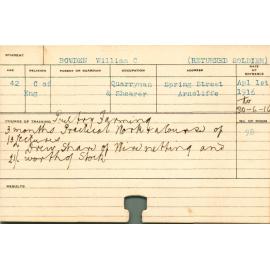 STUDENT BOWDEN William C (RETURNED SOLDIER)
AGE RELIGION PARENT OR GUARDIAN OCCUPATION ADDRESS DATE OF ENTRANCE
42 C of Eng Quarryman & Shearer Spring Street Arncliffe Apl 1st 1916 to 30-6-16
COURSE OF TRAINING Poultry Farming
3 months Practical Work & Course of 98
13 lectures
Drew Share of Wire netting and
worth of Stock
RESULTS